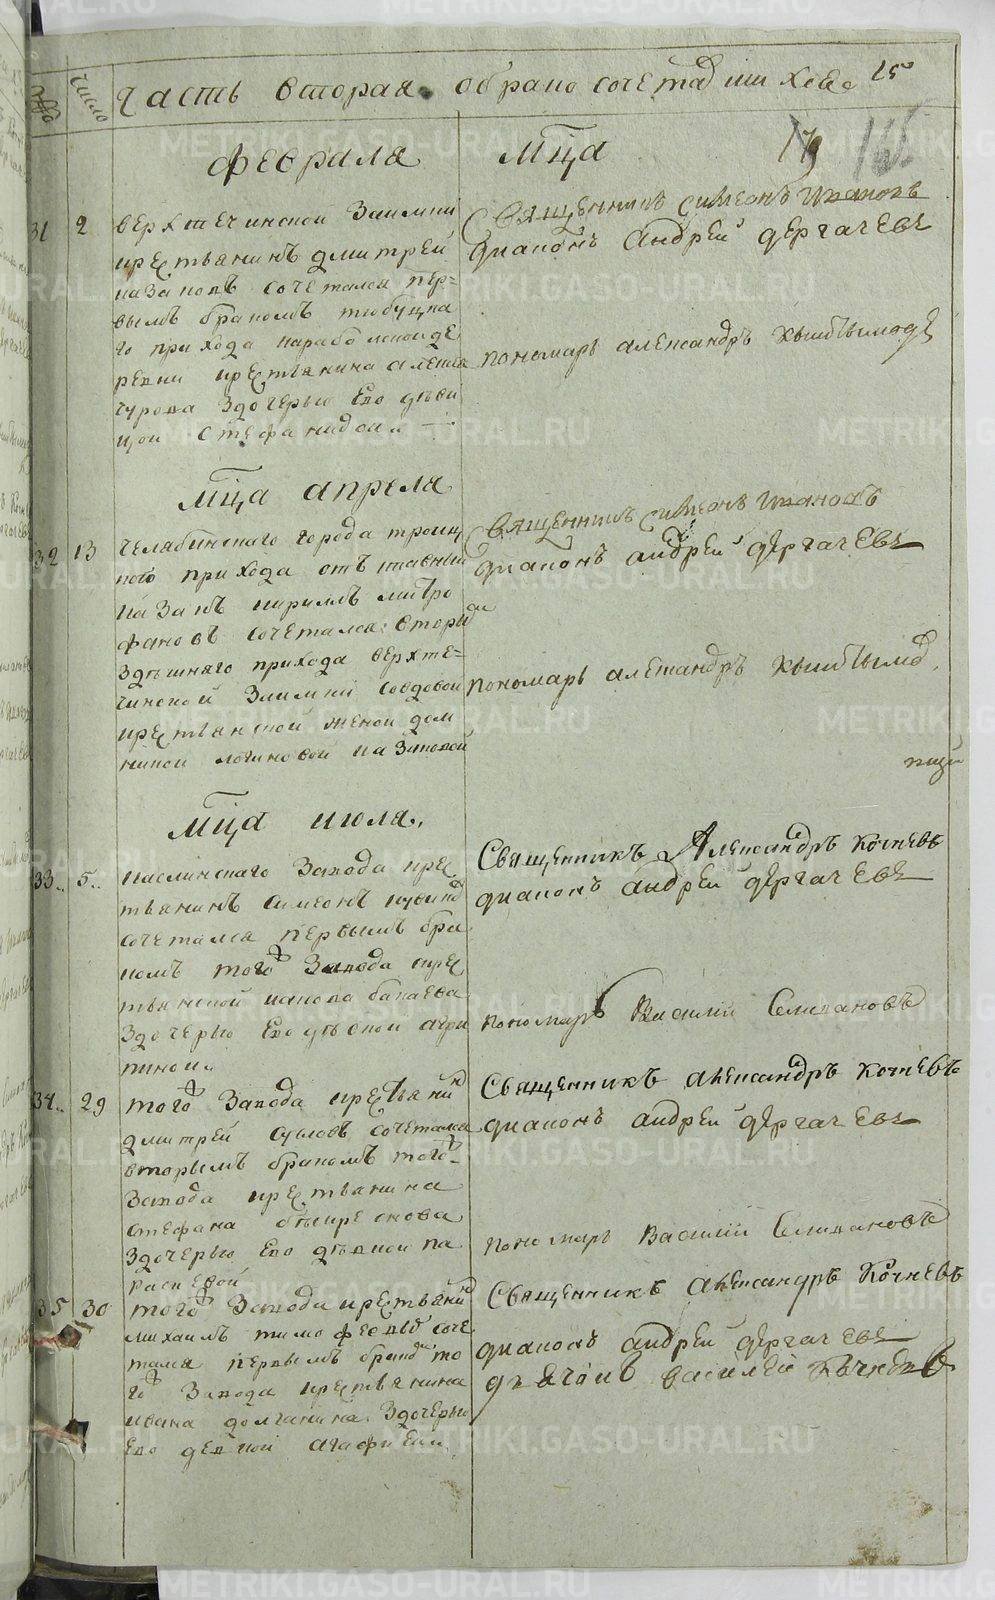 число
часть вторая о бракосочетавшихсѧ 15
февраля мца
31 2 верхтечинской Заимки
крестьянинъ дмитрей
казаковъ сочетался пер=
вымъ бракомъ тюбуцка
го прихода
ревни крестьянина алексея
Здочерью Его деви
цои стефанидои
Священникъ симеонъ ивановъ
диаконъ андреи дергачевъ
пономарь александръ
мца апреля
32 13 челябинскаго города троиц
кого прихода отъставный
казакъ кирилъ митро
фановъ сочетался вторы
Здешняго прихода верхте=
чинской Заимки совдовой
крестьянской женой дом
никой логиновой казаковой
Священникъ симеонъ ивановъ
диаконъ андреи дергачевъ
пономарь александръ
мца июля.
33.. 5.. каслинскаго Завода кре
стьянинъ симеонъ
сочетался первымъ бра
комъ того Завода кре
стьянской
Здочерью Его девкой агри
пинои
Священникъ Александръ Кочневъ
диаконъ андреи дергачевъ
пономарь Василий Селивановъ
34.. 29 того Завода крестьянин
дмитрей сочетался
вторымъ бракомъ того
Завода крестьянина
стефана
Здочерью Его девкой па
раскевой
Священникъ александръ кочневъ
диаконъ андреи дергачевъ
пономарь Василий Селивановъ
35 30 того Завода крестьянин
михаилъ тимофеевъ соче
тался первымъ браком то
го Завода крестьянина
ивана долганина Здочерью
Его девкой агафиеи
Священникъ александръ Кочневъ
диаконъ андреи дергачевъ
дьячокъ василей
METRIKI.GASO-URAL.RU